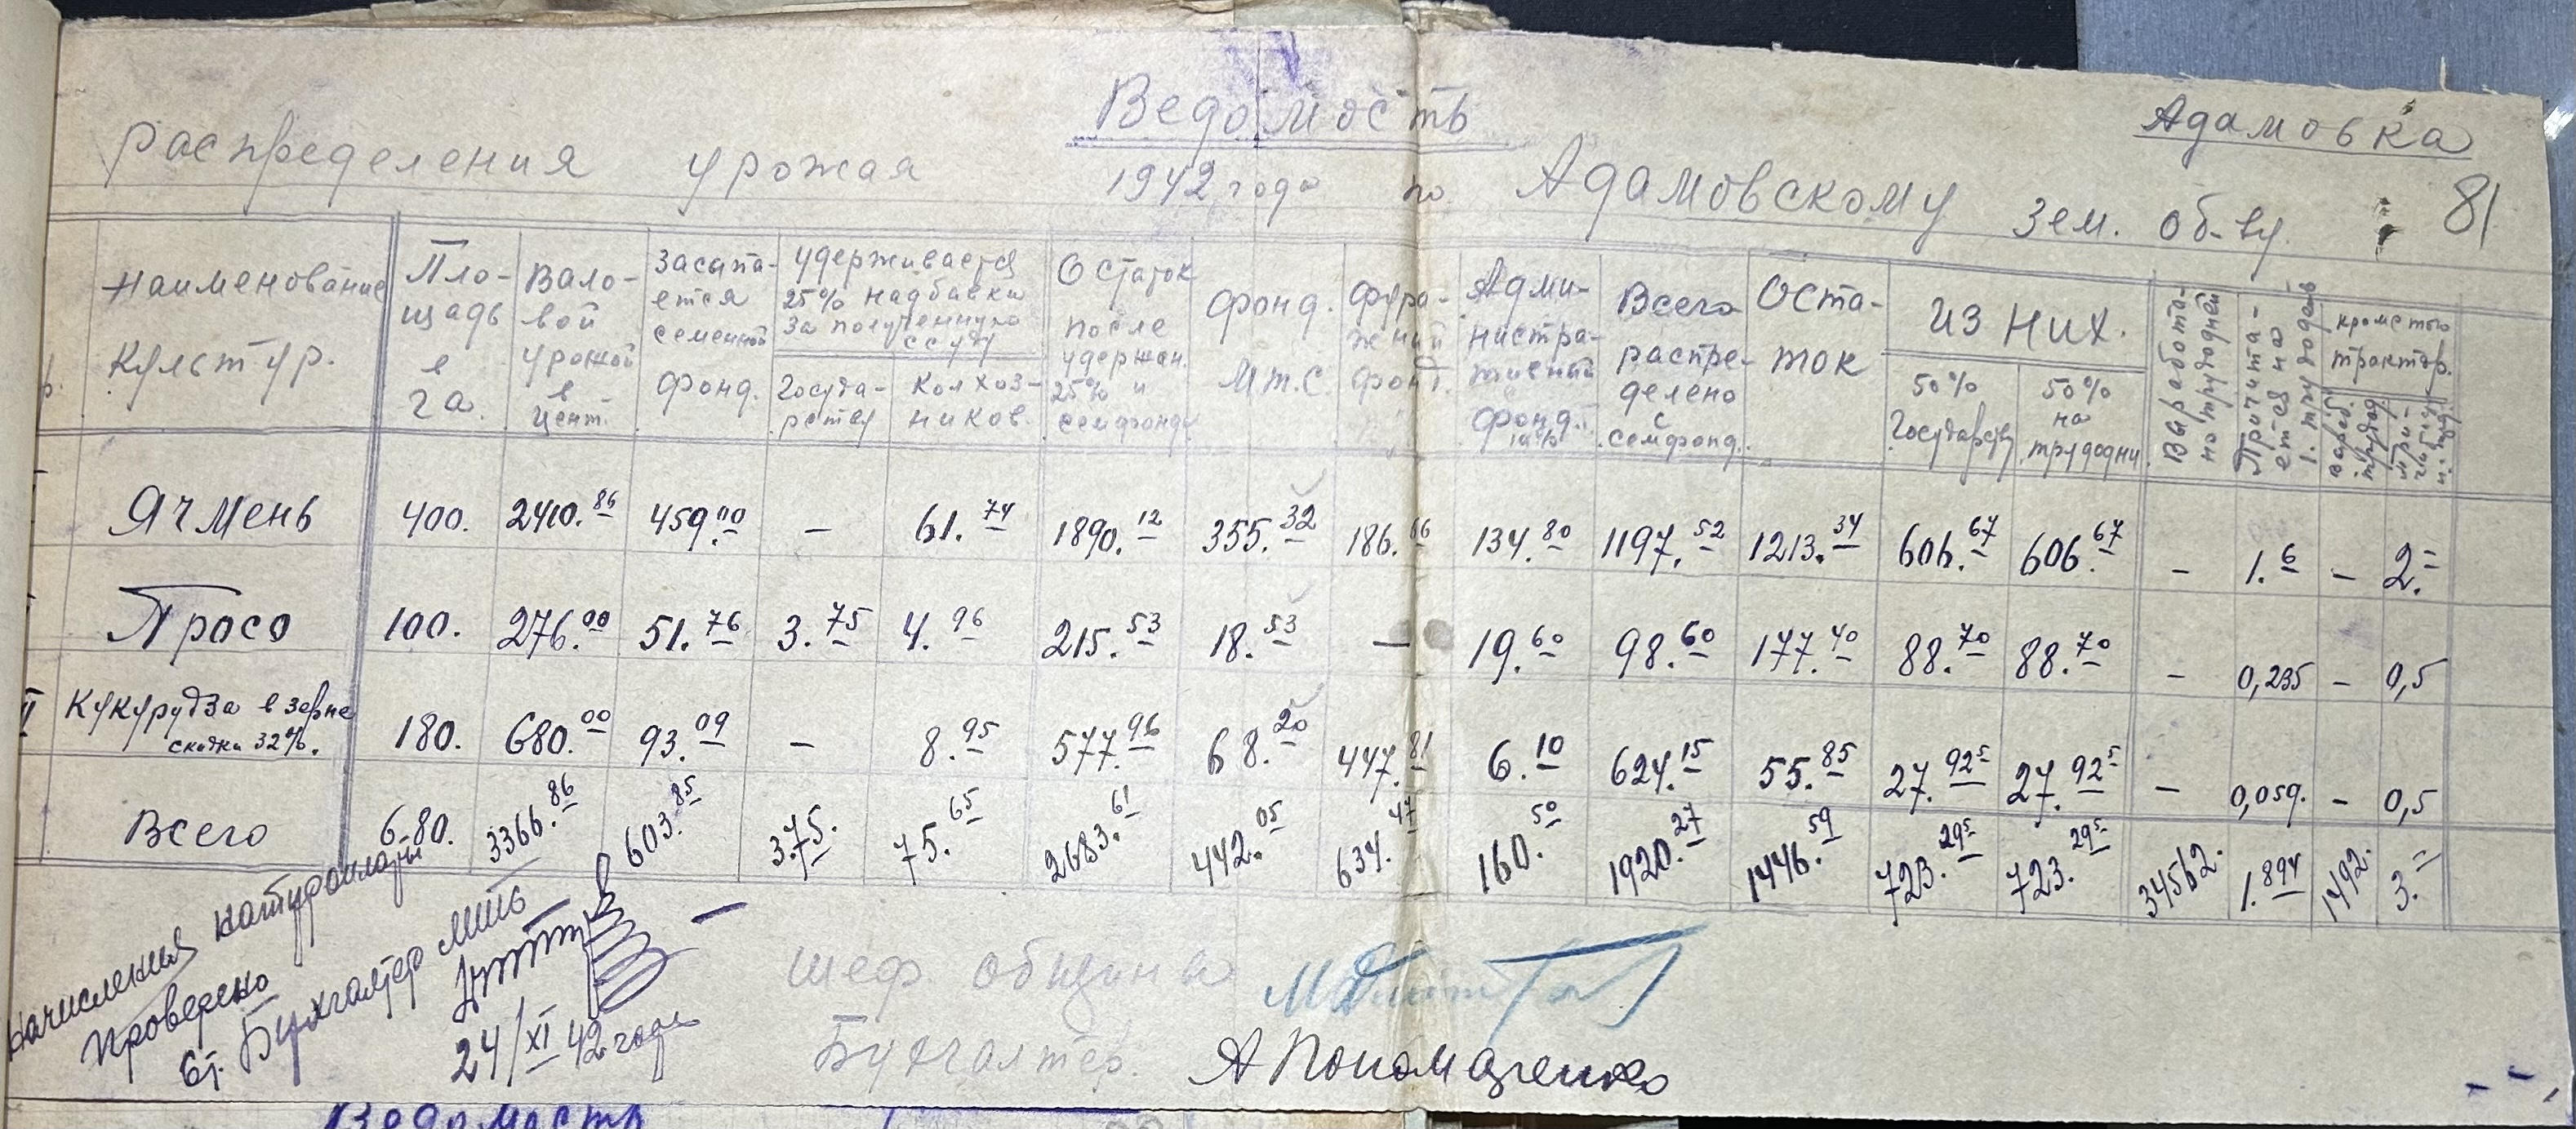 Адамовка
Ведомость
81
распределения урожая 1942 года по Адамовскому зем. об-ву
Наименование культур.
Площадь в га.
Валовой урожай в цент.
Засыпается семенной фонд.
Удерживается 25% надбавки за полученную ссуду
Государства
Колхозников.
Остаток после удержан. 25% и семфонда
Фонд. М.т.с.
Фуражный фонд.
Административный фонд. 10%
Всего распределено с семфонд.
Остаток
Из них.
50% Государству
50% на трудодни
Выработано трудодней
Причитается на 1. трудодень
кроме того трактор.
Ячмень 400. 2410.86 459.00 – 61.74 1890.12 355.32 186.66 134.80 1197.52 1213.34 606.67 606.67 – 1.6 – 2.=
Просо 100. 276.00 51.76 3.75 4.96 215.53 18.53 – 19.60 98.60 177.40 88.70 88.70 – 0,235 – 0,5
Кукурудза в зерне
скидки 32%. 180. 680.00 93.09 – 8.95 577.96 68.20 447.81 6.10 624.15 55.85 27.925 27.925 – 0,059. – 0,5
Всего 680. 3366.86 603.85 3.75. 75.65 2683.61 442.05 634.47 160.50 1920.27 1446.59 723.295 723.295 34562. 1.894 1492. 3.=
Начисления натуроплаты
Проверено
Ст. Бухгалтер
24/XI 42 года
Шеф. общины
Бухгалтер. А Пономаренко
Ведомость